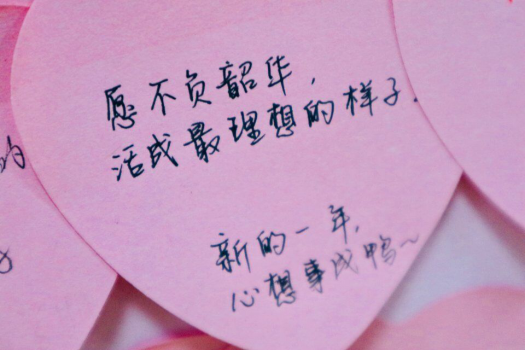 愿不负韶华，
活成最理想的样子.
新的一年，
心想事成鸭~
的